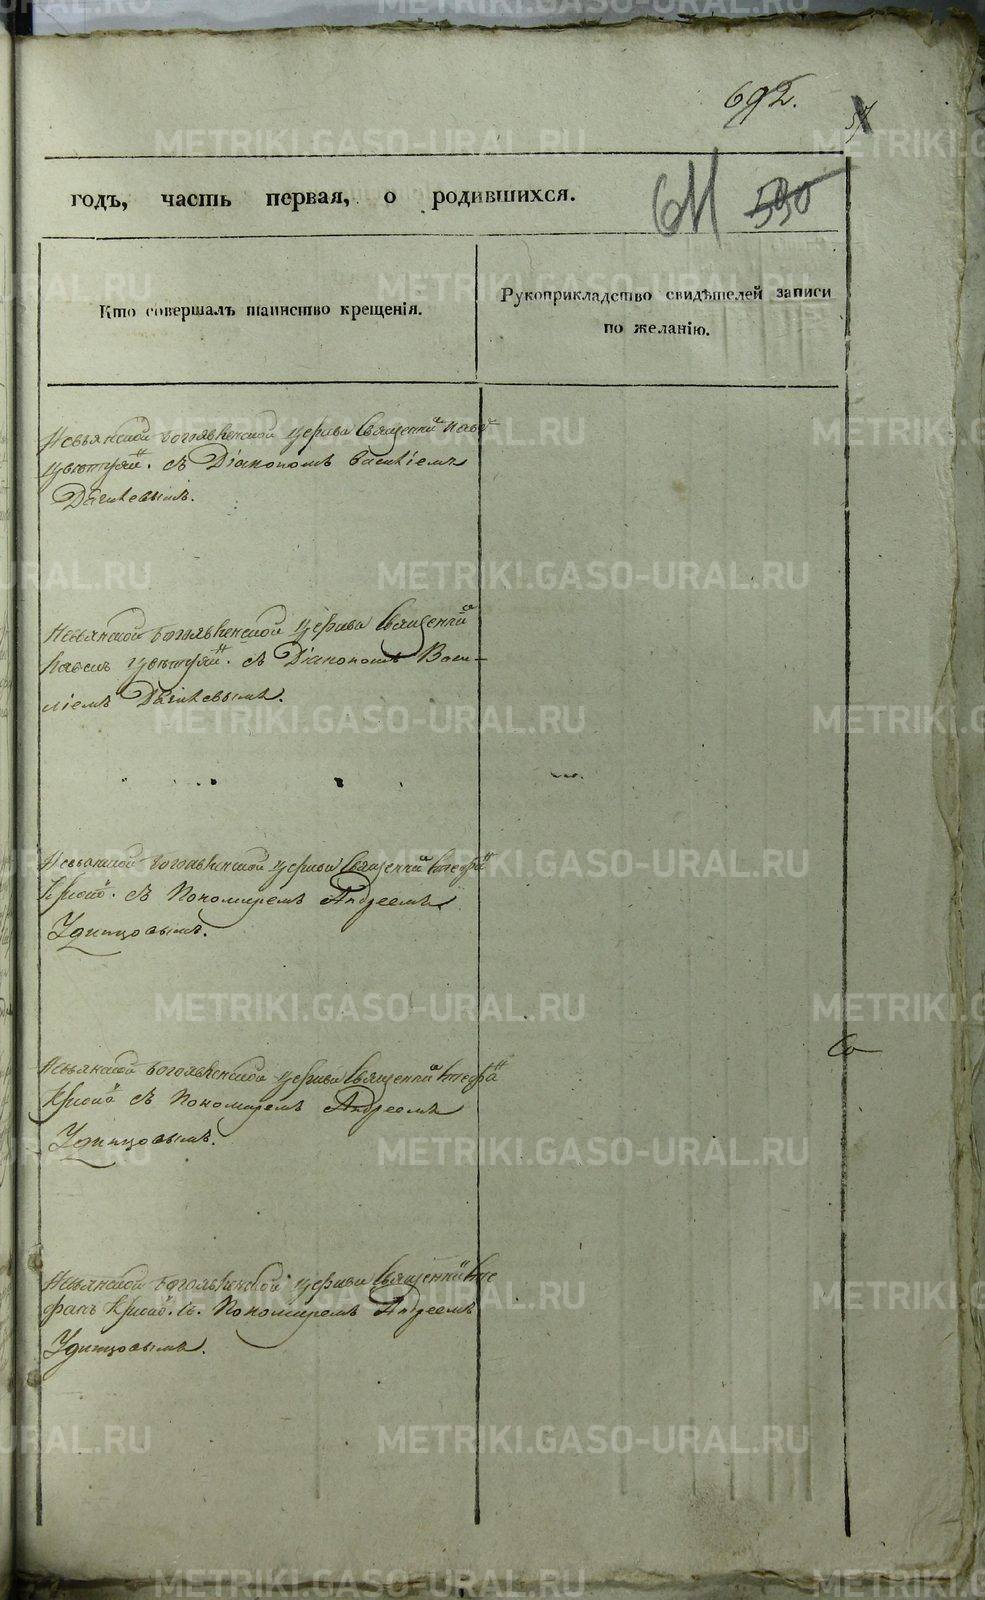 692.
57
годъ, часть первая, о родившихся.
611 590
Кто совершалъ таинство крещенія.
Рукоприкладство свидѣтелей записи
по желанію.
Невьянской Богоявленской церкви Священни
съ Діакономъ Василіемъ
Невьянской Богоявленской церкви Священни
Павелъ съ Діакономъ Васи-
ліемъ
Невьянской Богоявленской церкви Священни Стефа
съ Пономаремъ Андреемъ
Удинцовымъ.
Невьянской Богоявленской церкви Священни Стефа
съ Пономаремъ Андреемъ
Удинцовымъ.
Невьянской Богоявленской церкви Священни Сте
фанъ съ Пономаремъ Андреемъ
Удинцовымъ.
METRIKI.GASO-URAL.RU